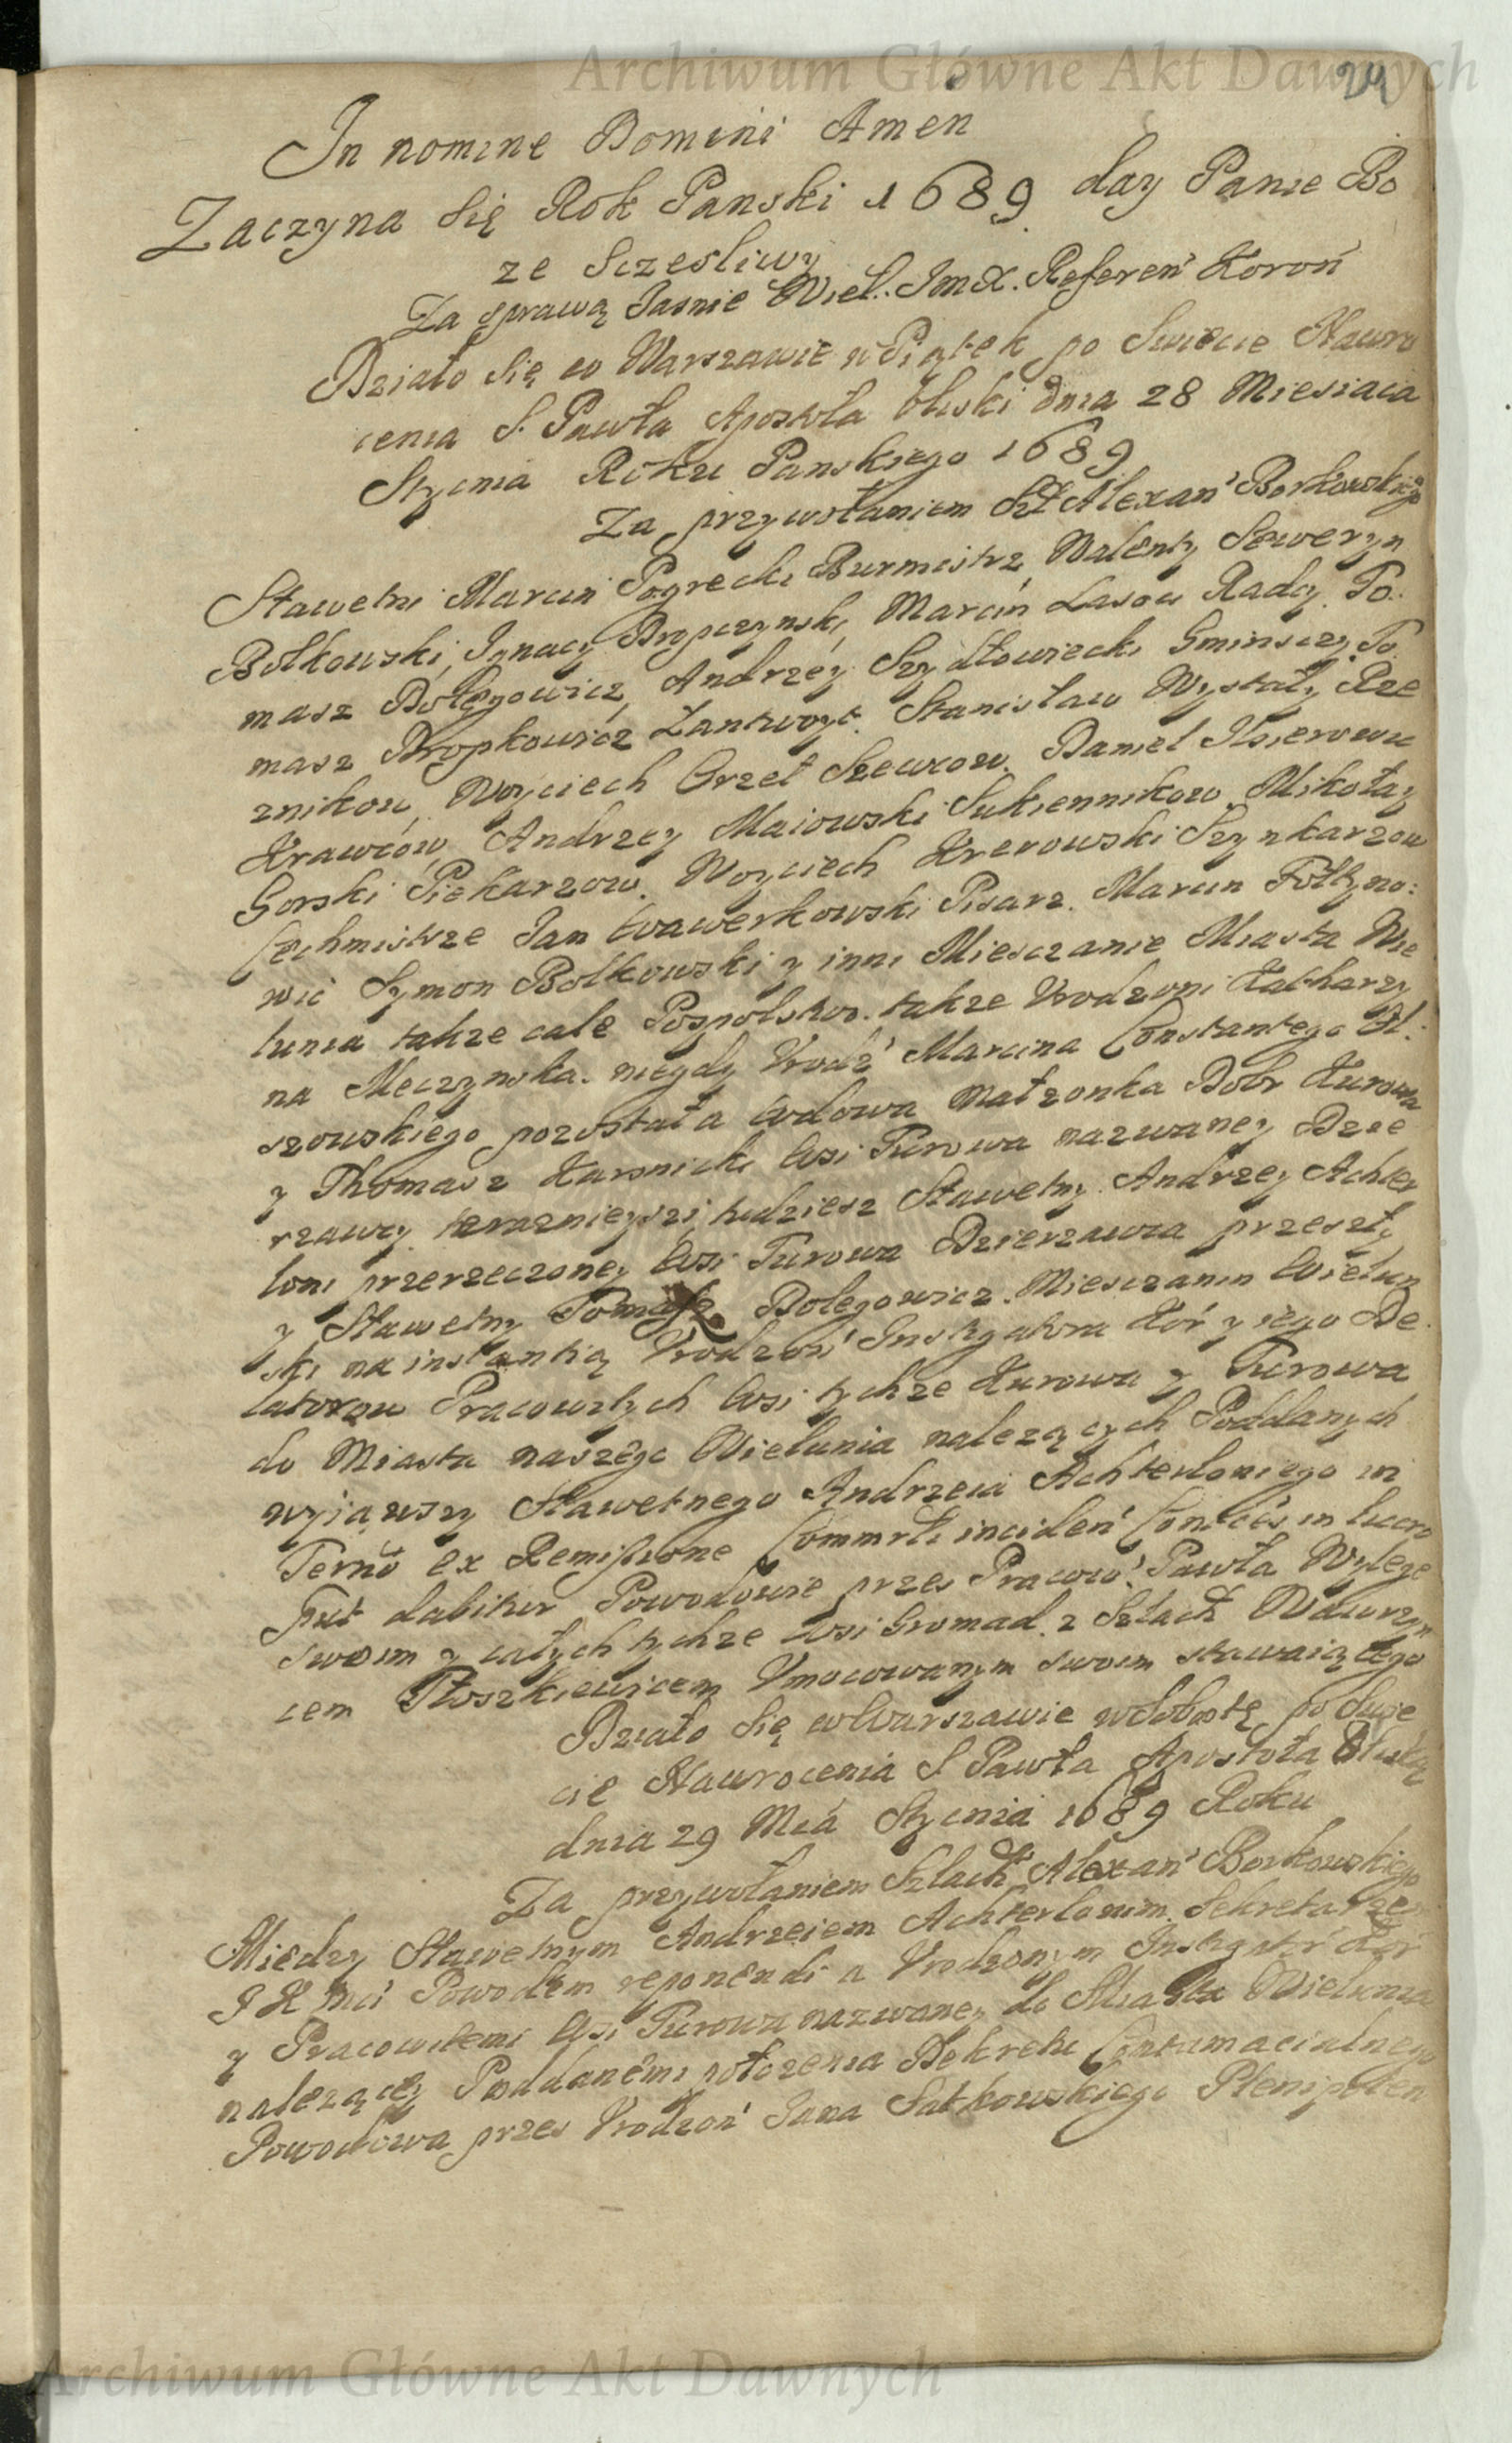 Archiwum Główne Akt Dawnych
24
In nomine Domini Amen
Zaczyna Się Rok Panski 1689 day Panie Bo
ze Sczesliwy
Za sprawą Jasnie Wiel. ImX. Referen Koron
Działo się w Warszawie w Piątek po Swięcie Nawro
cenia S. Pawła Apostoła bliski dnia 28 Miesiaca
Stycnia Roku Panskiego 1689
Za przywołaniem Szl Alexan Borkowskieg
Sławetni Marcin Pogrecki Burmistrz Walenty Seweryn
Bolkowski, Ignacy Dropczynski, Marcin Lasow Radcy. To
masz Bolęgowicz, Andrzey Szydłowiecki Gminsczy, To
masz Dropkowicz Lantwoyt. Stanisław Wystały Rze
znikow, Woyciech Orzeł Szewcow. Daniel
Krawców Andrzey Maiowski Sukiennikow. Mikołay
Gorski Piekarzow. Woyciech Krerowski Szynkarzow
Cechmistrze Jan Wawerkowski Pisarz. Marcin Fołtyno:
wic Szymon Bolkowski y inni Miesczanie Miasta Wie
lunia takze całe Pospolstwo. takze Vrodzoni Katharzy
na Meczynska. niegdy Vrodz Marcina Constantego Ol.
szowskiego pozostała wdowa Małzonka Dobr Kurowa
y Thomasz Karsnicki Wsi Turowa nazwaney Dzie
rzawcy teraznieyszi, tudziesz Sławetny Andrzey Achter
loni przerzeczoney Wsi Turowa Dzierzawca przeszły
y Sławetny Tomasz Bolegowicz. Miesczanin Wielun
ski na instantią Vrodzon Instygatora Kor y iego De.
latorow Pracowitych Wsi tychze Kurowa y Turowa
do Miasta naszego Wielunia nalezących Poddanych
wyiąwszy Sławetnego Andrzeia Achterloniego in
Termo ex Remissione Commrti inciden in lucro
Prut dabitur Powodowie przes Pracow. Pawła Wylęge
swoim y całych tychze Wsi Gromad. z Szlach Wawrzyn
cem Płoszkiewicem Vmocowanym swoim stawaiącego
Działo się w Warszawie w Sobotę po Swię
cie Nawrocenia S Pawła Apostoła bliską
dnia 29 Mca Stycnia 1689 Roku
Za przywołaniem Szlach Alexan Borkowskiego
Między Sławetnym Andrzeiem Achterlonim. Sekretarze
JKMci Powodem reponendi a Vrodzonym Instygatr Kor
y Pracowitemi Wsi Turowa nazwaney do Miasta Wielunia
nalezącey Poddanemi połozenia Dekretu Contumacialnego
Powodowa przes Vrodzon Jana Satkowskiego Plenipoten
Archiwum Główne Akt Dawnych